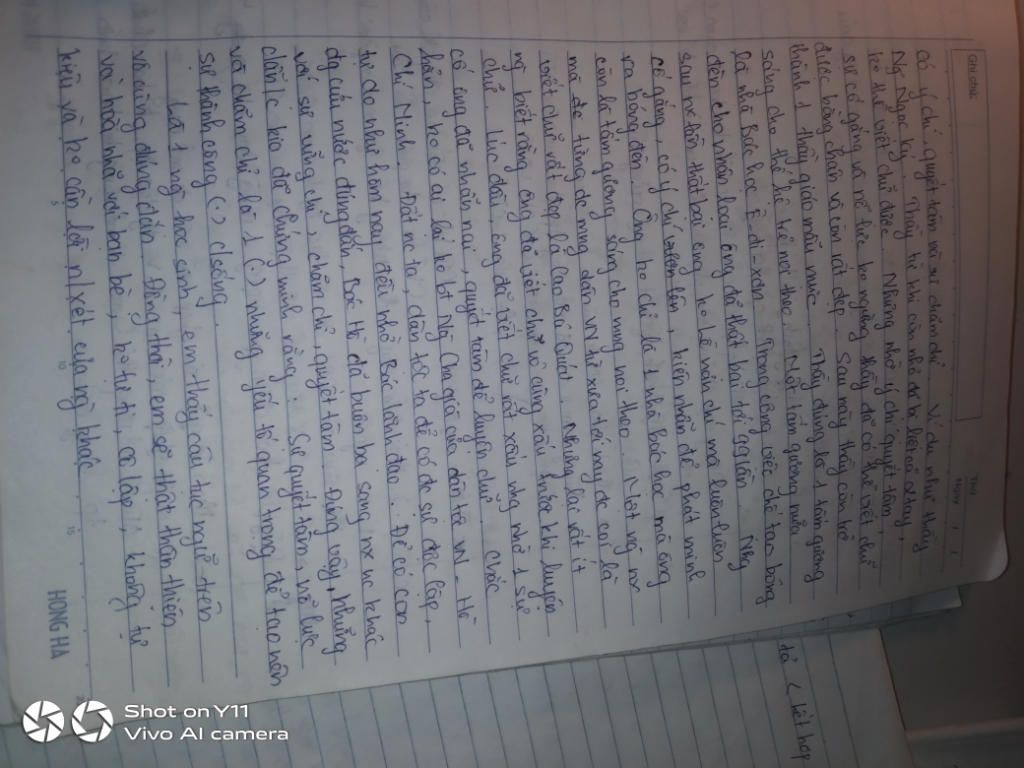 GHI CHÚ
THỨ
NGÀY / /
có ý chí, quyết tâm với sự chăm chỉ. Ví dụ như thầy
Ng Ngọc Ký. Thầy từ khi còn nhỏ đã bị liệt cả 2 tay,
ko thể viết chữ đc. Nhưng nhờ ý chí quyết tâm,
sự cố gắng và nỗ lực ko ngừng thầy đã có thể viết chữ
được bằng chân và còn rất đẹp. Sau này thầy còn trở
thành 1 thầy giáo mẫu mực. Thầy đúng là 1 tấm gương
sáng cho thế hệ trẻ noi theo. Một tấm gương nữa
là nhà Bác học Ê-đi-xơn. Trong công việc chế tạo bóng
đèn cho nhân loại ông đã thất bại tới gần lần. Nhg
sau mỗi lần thất bại ông ko hề nản chí mà luôn luôn
cố gắng, có ý chí lớn, kiên nhẫn để phát minh
ra bóng đèn. Ông ko chỉ là 1 nhà bác học mà ông
còn là tấm gương sáng cho mng noi theo. Một vị nx
mà tiếng đc mng dân VN từ xưa tới nay đc coi là
viết chữ rất đẹp là Cao Bá Quát. Nhưng lại rất ít
ng biết rằng ông đã viết chữ vô cùng xấu trước khi luyện
chữ. Lúc đầu ông đã viết chữ rất xấu nhg nhờ 1 sự
cố ông đã nhẫn nại, quyết tâm để luyện chữ. Chắc
hẳn, ko có ai lại ko bt Ng Cha già của dân tộc VN - Hồ
Chí Minh. Đất nc ta, dân tộc ta để có đc sự độc lập,
tự do như hôm nay đều nhờ Bác lãnh đạo. Để có con
đg cứu nước đúng đắn, Bác Hồ đã buôn ba sang nx nc khác
với sự siêng chí, chăm chỉ, quyết tâm. Đúng vậy, những
dẫn/c kia đã chứng minh rằng: Sự quyết tâm, nỗ lực
và chăm chỉ là 1 (.) những yếu tố quan trọng để tạo nên
sự thành công (.) c/sống.
Là 1 ng học sinh, em thấy câu tục ngữ trên
vô cùng đúng đắn. Đồng thời, em sẽ thật thân thiện
và hòa nhã với bạn bè, ko tự ti, cô lập, không tự
kiêu và ko cần lời n/xét của ng khác
5
10
15
HONG HA
tả (kết hợp
Shot on Y11
Vivo AI camera